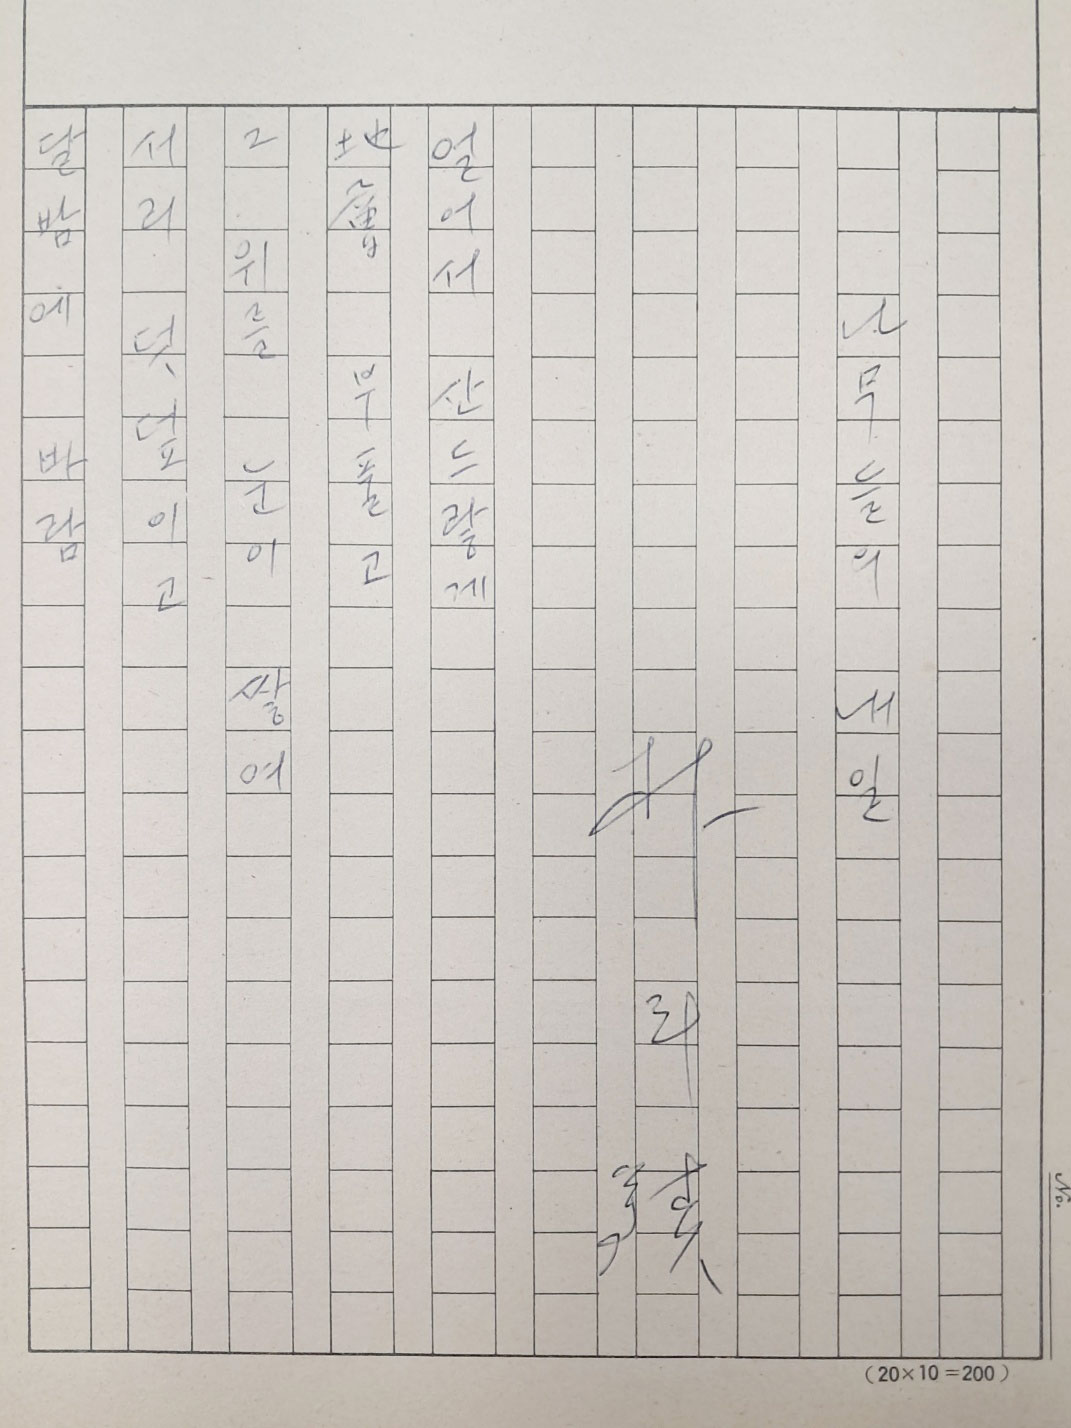 나무들의 내일
얼어서 산드랗게
부풀고
그 위를 눈이 쌓여
서리 덧덮이고
달밤에 바람
No.
(20×10=200)